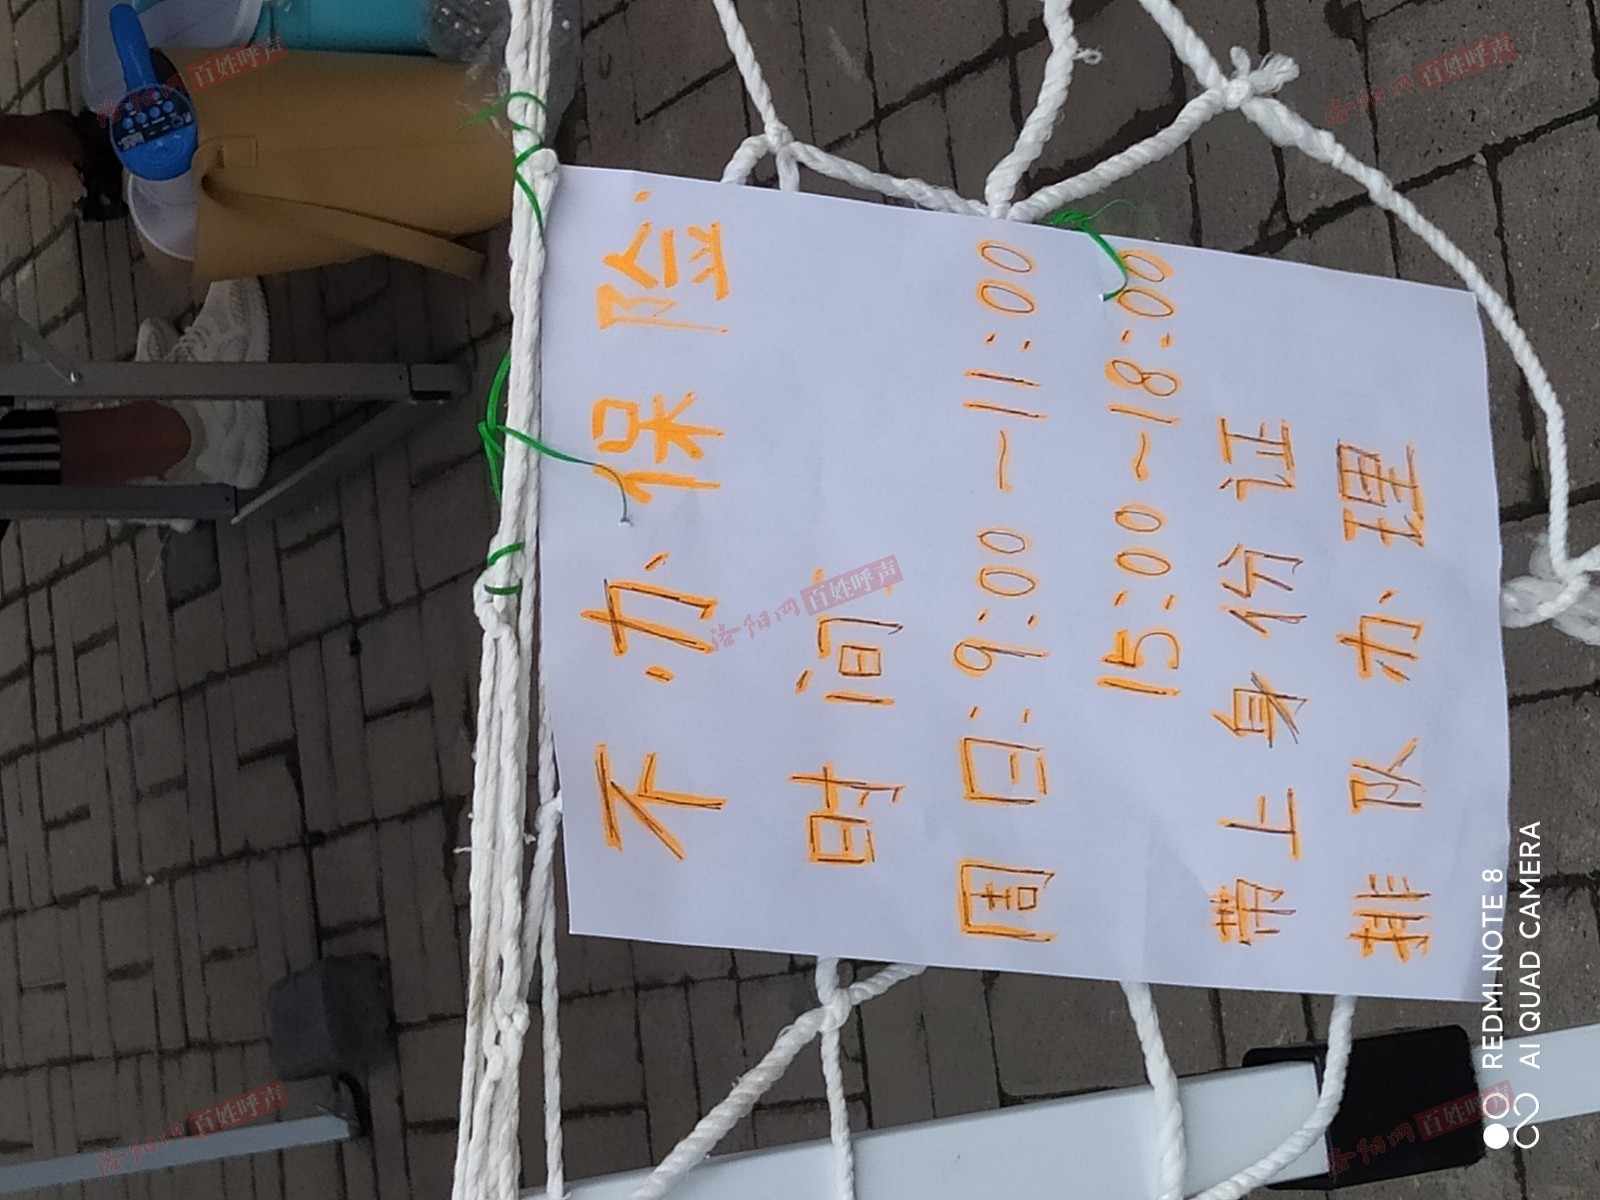 不办保险.
时间:
周日:9:00~11:00
15:00~18:00
带上身份证
排队办理
REDMI NOTE 8
AI QUAD CAMERA
洛阳网 百姓呼声
洛阳网 百姓呼声
洛阳网 百姓呼声
洛阳网 百姓呼声
洛阳网 百姓呼声